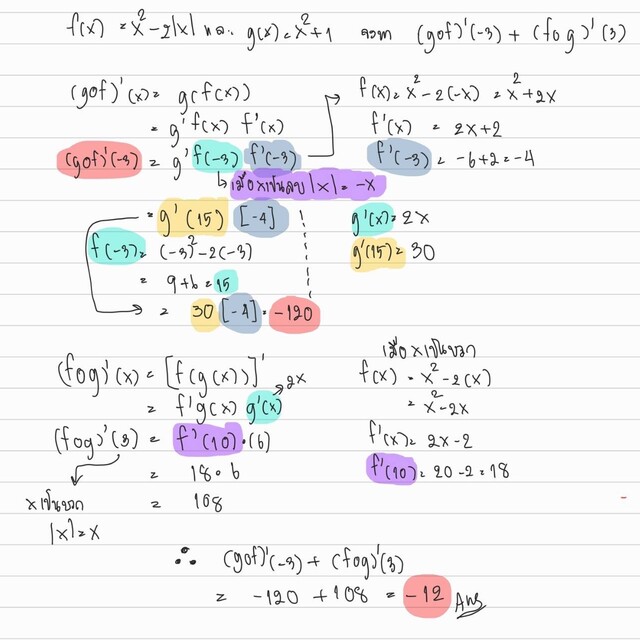 f(x) = x² - 2|x| และ g(x) = x² + 1 จงหา (gof)'(-3) + (fog)'(3)
(gof)'(x) = g(f(x))
= g'f(x) f'(x)
(gof)'(-3) = g'f(-3) f'(-3)
เมื่อ x เป็นลบ |x| = -x
= g'(15) [-4]
f(-3) = (-3)² - 2(-3)
= 9+6 = 15
= 30 [-4] = -120
f(x) = x² - 2(-x) = x² + 2x
f'(x) = 2x+2
f'(-3) = -6+2 = -4
g'(x) = 2x
g'(15) = 30
(fog)'(x) = [f(g(x))]'
2x
= f'g(x) g'(x)
(fog)'(3) = f'(10)·(6)
= 18·6
= 108
x เป็นบวก
|x| = x
เมื่อ x เป็นบวก
f(x) = x² - 2(x)
= x² - 2x
f'(x) = 2x - 2
f'(10) = 20 - 2 = 18
∴ (gof)'(-3) + (fog)'(3)
= -120 + 108 = -12 Ans